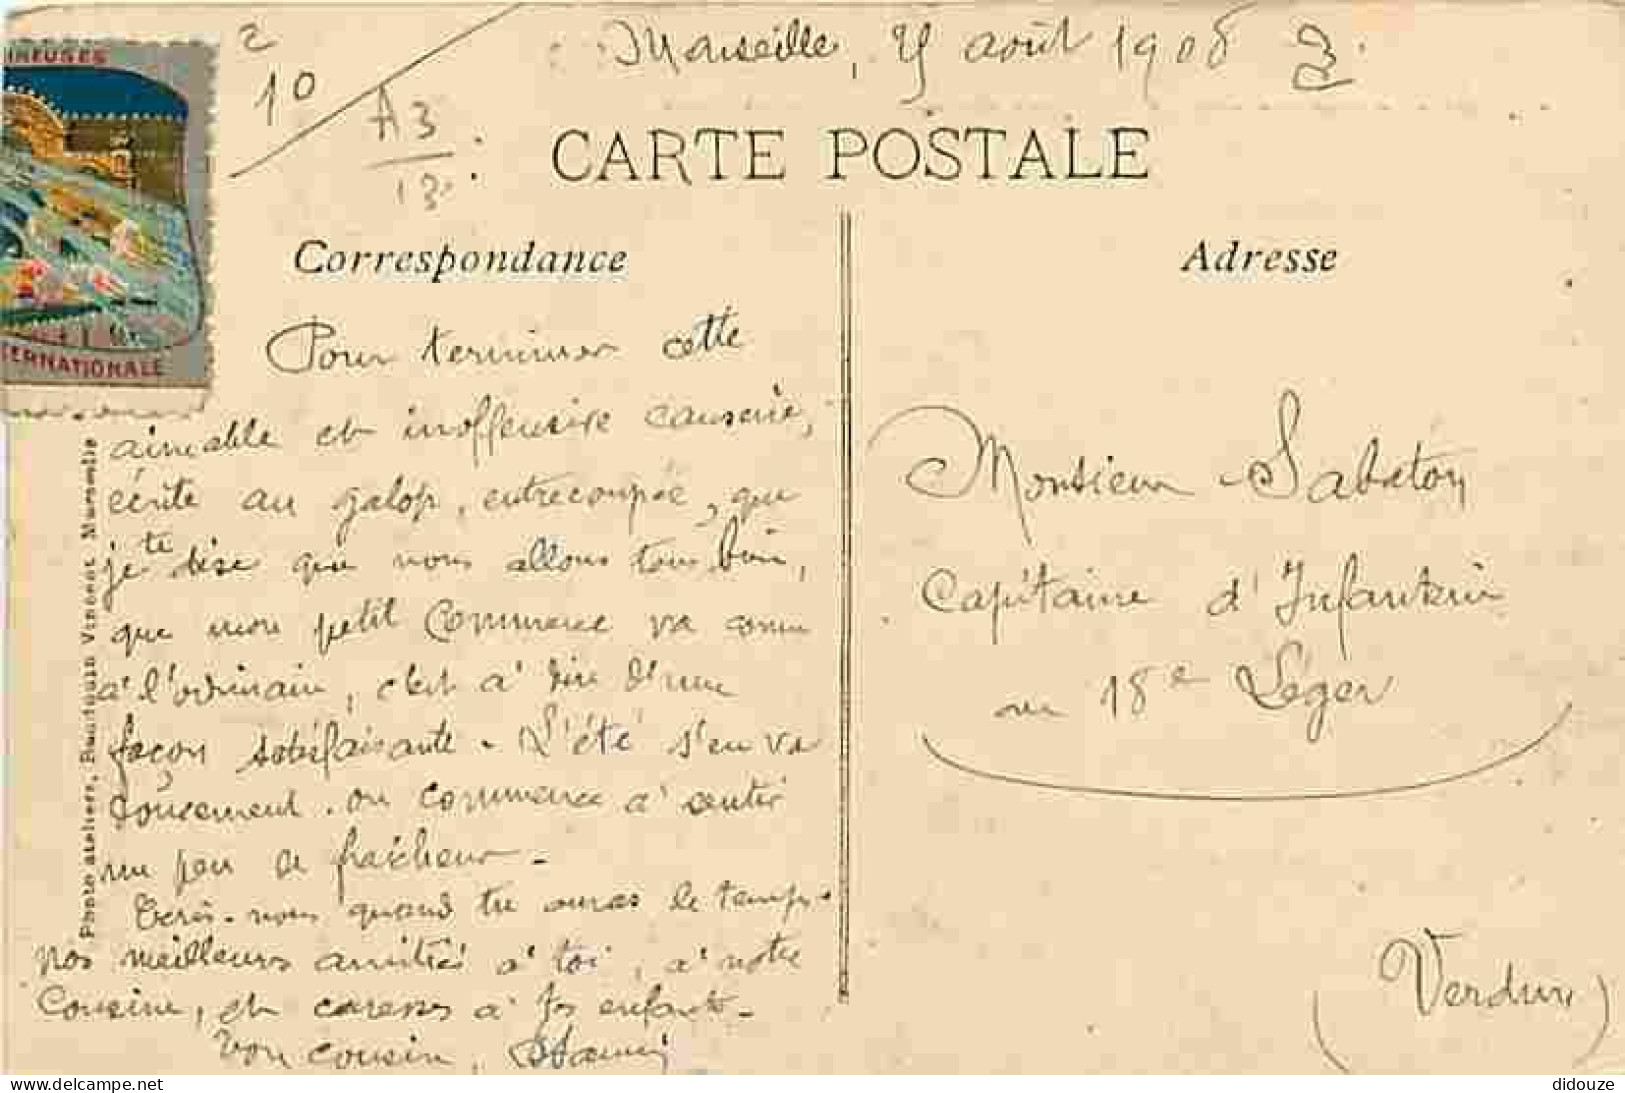 2
10
A3
13
Marseille, août 1908
CARTE POSTALE
Correspondance
Adresse
INEUSES
TERNATIONALE
Pour terminer cette
aimable et inoffensive causerie,
écrite au galop, entrecoupée, que
je te dise que nous allons tous bien,
que mon petit commerce va comme
à l'ordinaire, c'est à dire d'une
façon satisfaisante. L'été s'en va
doucement. on commence à sentir
un peu de fraîcheur.
Ecris-nous quand tu auras le temps.
Nos meilleures amitiés à toi, à notre
Cousine, et caresses à tes enfants.
Ton cousin,
Photo ateliers, Baudouin Vincent, Marseille
Monsieur Sabaton
Capitaine d'Infanterie
au 18e Léger
(Verdun)
didouze | Delcampe